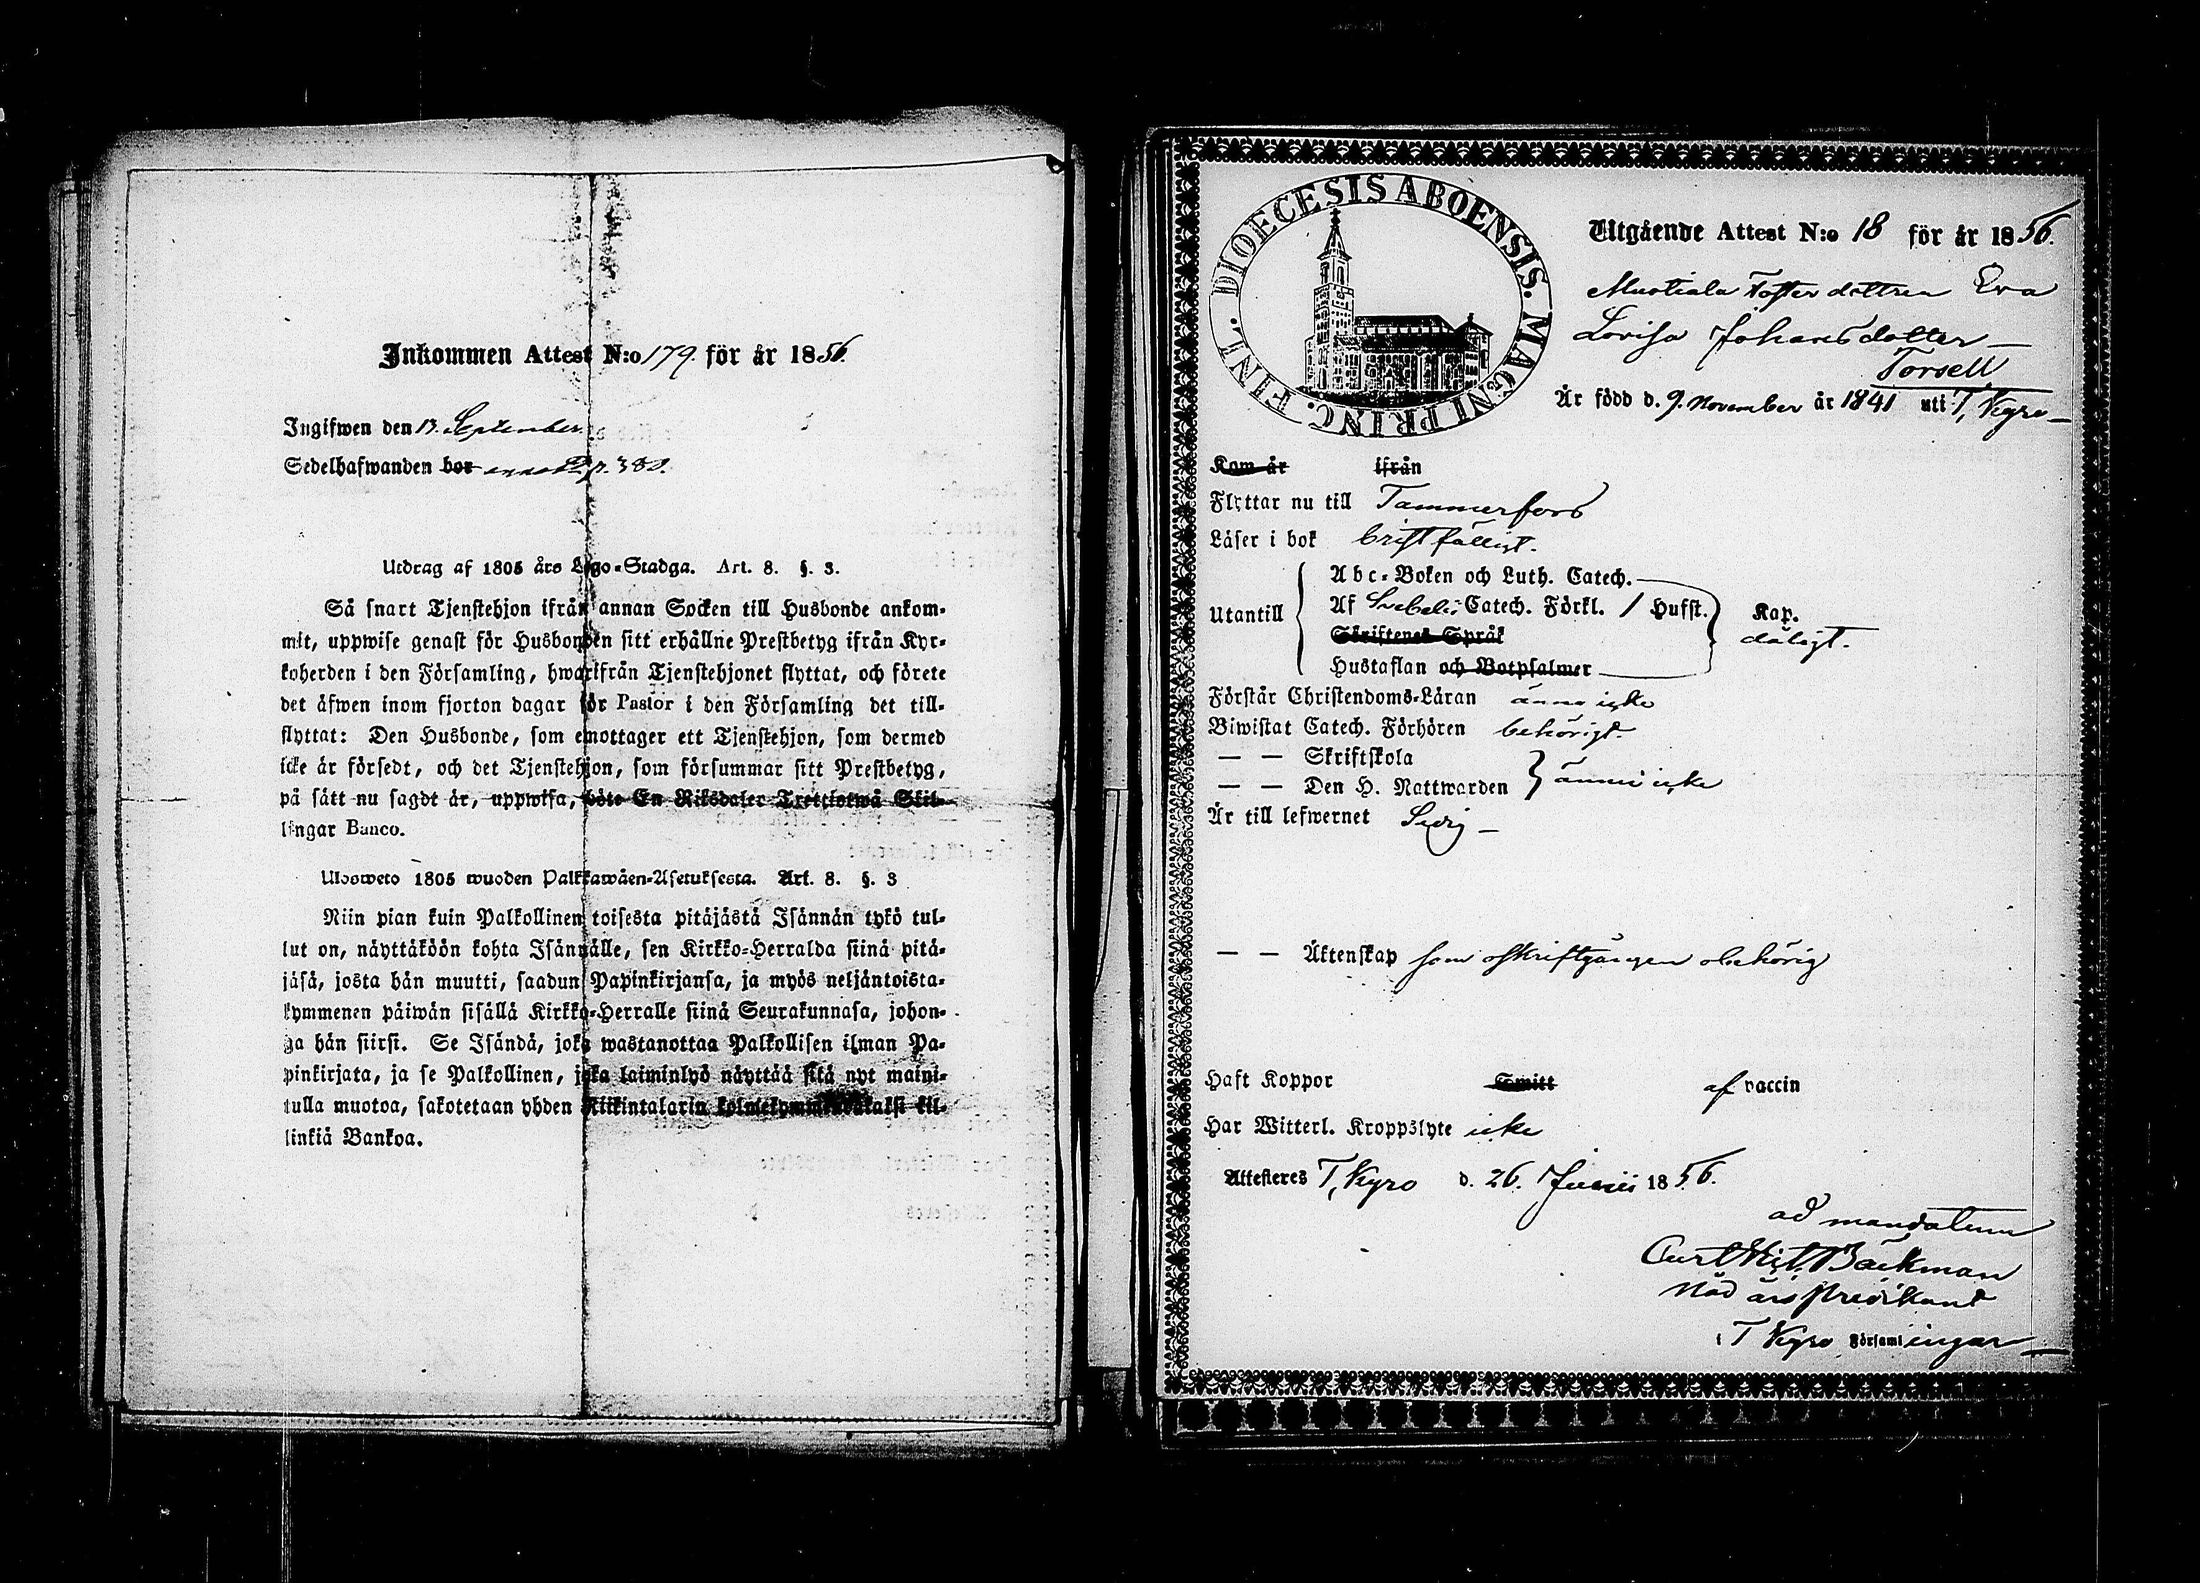 Inkommen Attest N:o 179. för år 1856.
Ingifwen den 13. September
Sedelhafwanden bor p. 382.
Utdrag af 1805 års Lego-Stadga. Art. 8. §. 3.
Så snart Tjenstehjon ifrån annan Socken till Husbonde ankom-
mit, uppwise genast för Husbonden sitt erhållne Prestbetyg ifrån Kyr-
koherden i den Församling, hwarifrån Tjenstehjonet flyttat, och förete
det äfwen inom fjorton dagar för Pastor i den Församling det till-
flyttat: Den Husbonde, som emottager ett Tjenstehjon, som dermed
icke är försedt, och det Tjenstehjon, som försummar sitt Prestbetyg,
på sätt nu sagdt är, uppwisa, böte En Riksdaler Trettiotwå Skil-
lingar Banco.
Ulosweto 1805 wuoden Palkkawäen-Asetuksesta. Art. 8. §. 3
Niin pian kuin Palkollinen toisesta pitäjästä Isännän tykö tul-
lut on, näyttäköön kohta Isännälle, sen Kirkko-Herralda siinä pitä-
jäsä, josta hän muutti, saadun Papinkirjansa, ja myös neljäntoista-
kymmenen päiwän sisällä Kirkko-Herralle siinä Seurakunnasa, johon-
ga hän siirsi. Se Isändä, joka wastanottaa Palkollisen ilman Pa-
pinkirjata, ja se Palkollinen, joka laiminlyö näyttää sitä nyt maini-
tulla muotoa, sakotetaan yhden Riikintalarin kolmekymmendäkaksi kil-
linkiä Bankoa.
DIOECESIS ABOENSIS. MAGNI PRINC. FINL.
Utgående Attest N:o 18 för år 1856.
Mustiala Fosterdottren Eva
Lovisa Johansdotter
Torsell
Är född d. 9. November år 1841 uti T. Kyro
Kom år ifrån
Flyttar nu till Tammerfors
Läser i bok bristfälligt.
Abc-Boken och Luth. Catech.
Utantill Af Svebelii Catech. Förkl. 1 Hufst. Kap.
dåligt.
Skriftenes Språk
Hustaflan och Botpsalmer
Förstår Christendoms-Läran ännu icke
Biwistat Catech. Förhören behörigt.
— — Skriftskola
— — Den H. Nattwarden ännu icke
Är till lefwernet Sedig
— — Äktenskap som oskriftgången obehörig
Haft Koppor Smitt af vaccin
Har Witterl. Kroppslyte icke
Attesteres T. Kyro d. 26. Junii 1856.
ad mandatum
Curt Bäckman
Nåd års predikant
i T Kyro Församlingar